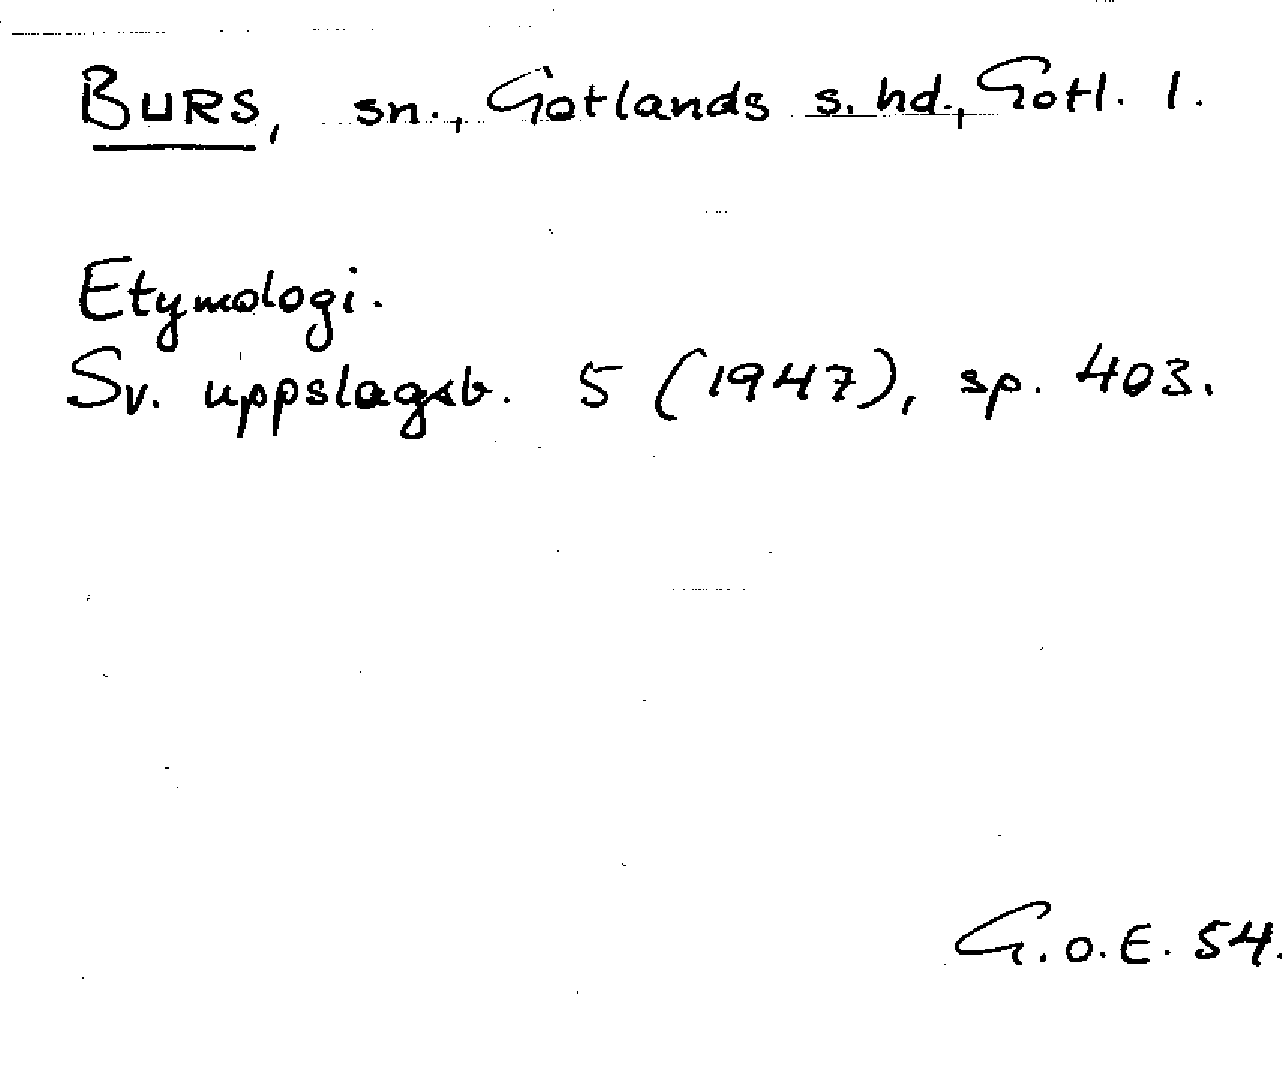 BURS, sn., Gotlands s. hd., Gotl. l.
Etymologi.
Sv. uppslagsb. 5 (1947), sp. 403.
G.O.E. 54.